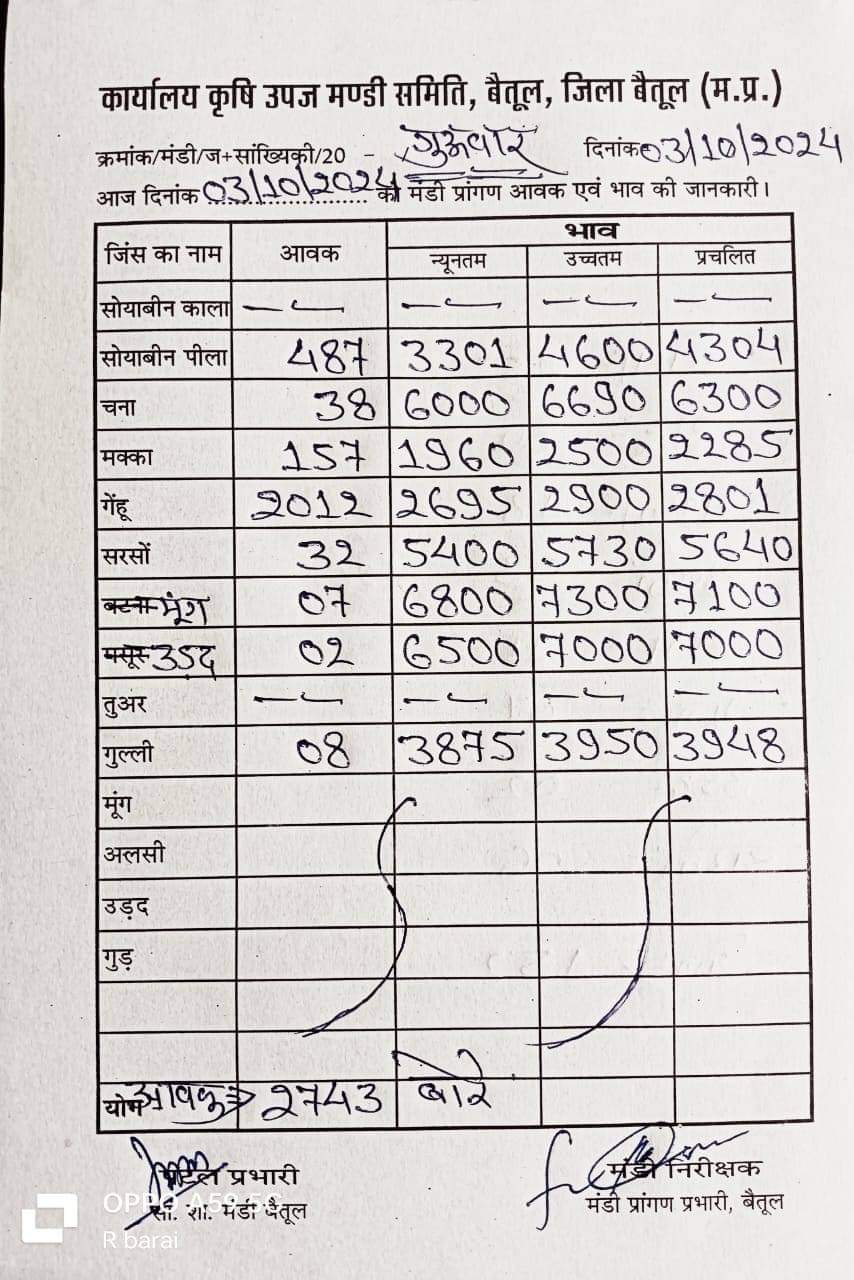 कार्यालय कृषि उपज मण्डी समिति, बैतूल, जिला बैतूल (म.प्र.)
क्रमांक/मंडी/ज+सांख्यिकी/20 - गुरूवार दिनांक 03/10/2024
आज दिनांक 03/10/2024 को मंडी प्रांगण आवक एवं भाव की जानकारी।
जिंस का नाम आवक भाव
न्यूनतम उच्चतम प्रचलित
सोयाबीन काला — — — —
सोयाबीन पीला 487 3301 4600 4304
चना 38 6000 6690 6300
मक्का 157 1960 2500 2285
गेंहू 2012 2695 2900 2801
सरसों 32 5400 5730 5640
बटना मूंग 07 6800 7300 7100
मसूर उड़द 02 6500 7000 7000
तुअर — — — —
गुल्ली 08 3875 3950 3948
मूंग
अलसी
उड़द
गुड़
योग आवक 2743 बोरे
प्रभारी मंडी निरीक्षक
सां. शा. मंडी बैतूल मंडी प्रांगण प्रभारी, बैतूल
OPPO A59 5G
R barai